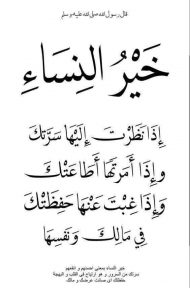 قال رسول الله صلى الله عليه و سلم
خَيْرُ النِسَاءِ
إِذَا نَظَرْتَ إِلَيْهَا سَرَّتْكَ
وَإِذَا أَمَرْتَهَا أَطَاعَتْكَ
وَإِذَا غِبْتَ عَنْهَا حَفِظَتْكَ
فِي مَالِكَ وَنَفْسِهَا
خير النساء بمعنى احسنهم و انفعهم
سرتك من السرور و هو ارتياح في القلب و البهجة
حفظتك اي صانت عرضك و مالك